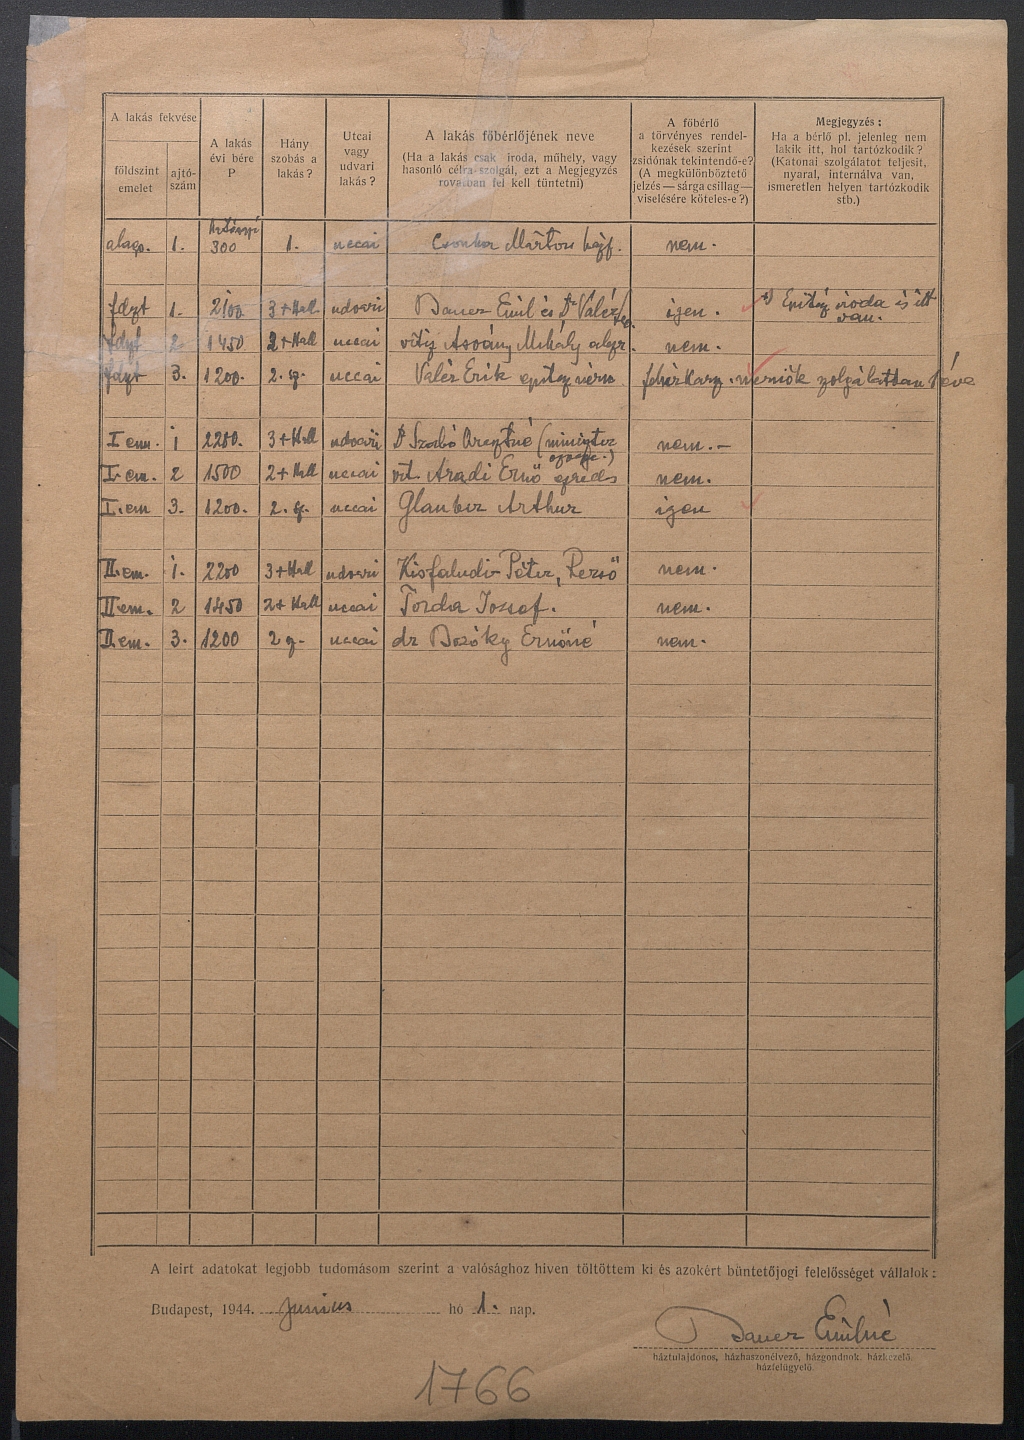 A lakás fekvése
földszint
emelet
ajtó-
szám
A lakás
évi bére
P
Hány
szobás a
lakás ?
Utcai
vagy
udvari
lakás ?
A lakás főbérlőjének neve
(Ha a lakás csak iroda, műhely, vagy
hasonló célra szolgál, ezt a Megjegyzés
rovatban fel kell tüntetni)
A főbérlő
a törvényes rendel-
kezések szerint
zsidónak tekintendő-e?
(A megkülönböztető
jelzés — sárga csillag —
viselésére köteles-e ?)
Megjegyzés :
Ha a bérlő pl. jelenleg nem
lakik itt, hol tartózkodik ?
(Katonai szolgálatot teljesit,
nyaral, internálva van,
ismeretlen helyen tartózkodik
stb.)
alags. 1. 300 1. uccai Csonka Márton hájf. nem.
fdszt 1. 2100 3+Hall udvari Bauer Emil és Dr Valér igen. Épitész iroda is itt
van.
fdszt 2. 1450 2+Hall uccai vitéz Asvány Mihály nem.
fdszt 3. 1200. 2. uccai Valér Erik fehérkarsz. mérnök
I em. 1 2200. 3+Hall udvari Dr Szabó (miniszter nem.-
I. em. 2 1500 2+Hall uccai vit. Aradi Ernő ezredes nem.
I. em 3. 1200. 2. uccai Glauber Arthur igen
II. em. 1. 2200 3+Hall udvari Kisfaludi Péter, nem.
II em. 2 1450 2+Hall uccai Torda József. nem.
II. em. 3. 1200 2 uccai dr Bozóky Ernőné nem.
A leirt adatokat legjobb tudomásom szerint a valósághoz hiven töltöttem ki és azokért büntetőjogi felelősséget vállalok :
Budapest, 1944. junius hó 1. nap.
Bauer Emilné
háztulajdonos, házhaszonélvező, házgondnok, házkezelő,
házfelügyelő
1766